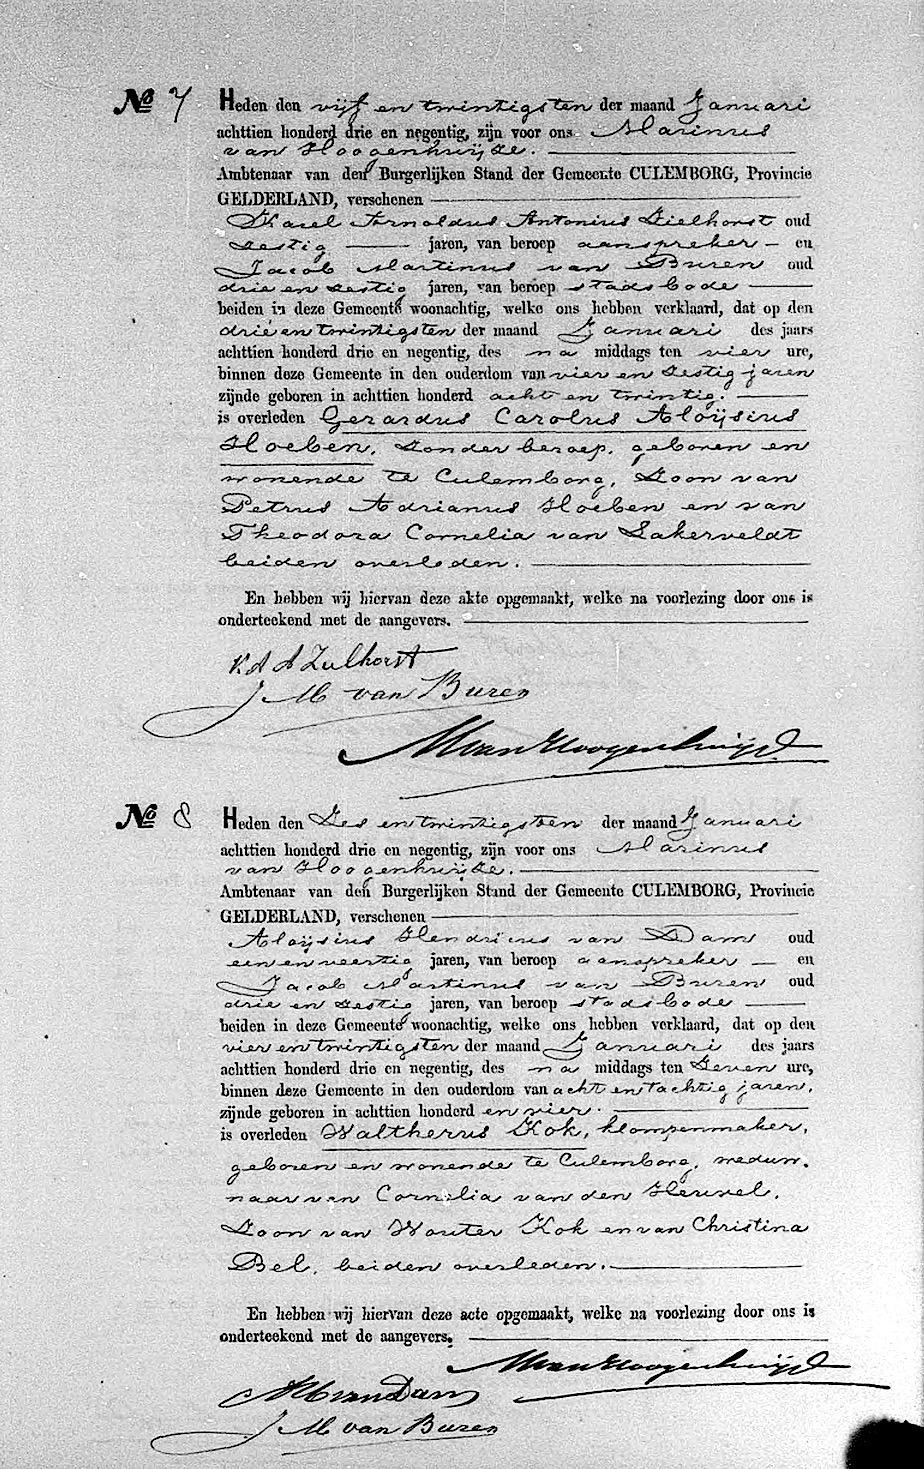 No 7 Heden den vijf en twintigsten der maand Januari
achttien honderd drie en negentig, zijn voor ons Marinus
van Hoogenhuijze.
Ambtenaar van den Burgerlijken Stand der Gemeente CULEMBORG, Provincie
GELDERLAND, verschenen
Karel Arnoldus Antonius Zielhorst oud
zestig jaren, van beroep aanspreker en
Jacob Martinus van Buren oud
drie en zestig jaren, van beroep stadsbode
beiden in deze Gemeente woonachtig, welke ons hebben verklaard, dat op den
drie en twintigsten der maand Januari des jaars
achttien honderd drie en negentig, des na middags ten vier ure,
binnen deze Gemeente in den ouderdom van vier en zestig jaren
zijnde geboren in achttien honderd acht en twintig.
is overleden Gerardus Carolus Aloÿsius
Hoeben, zonder beroep, geboren en
wonende te Culemborg, Zoon van
Petrus Adrianus Hoeben en van
Theodora Cornelia van Zakerveldt
beiden overleden.
En hebben wij hiervan deze akte opgemaakt, welke na voorlezing door ons is
onderteekend met de aangevers.
K A A Zielhorst
J M van Buren
MvanHoogenhuijze
No 8 Heden den Zes en twintigsten der maand Januari
achttien honderd drie en negentig, zijn voor ons Marinus
van Hoogenhuijze.
Ambtenaar van den Burgerlijken Stand der Gemeente CULEMBORG, Provincie
GELDERLAND, verschenen
Aloÿsius Hendricus van Dam oud
een en veertig jaren, van beroep aanspreker en
Jacob Martinus van Buren oud
drie en zestig jaren, van beroep stadsbode
beiden in deze Gemeente woonachtig, welke ons hebben verklaard, dat op den
vier en twintigsten der maand Januari des jaars
achttien honderd drie en negentig, des na middags ten Zeven ure,
binnen deze Gemeente in den ouderdom van acht en tachtig jaren,
zijnde geboren in achttien honderd en vier.
is overleden Waltherus Kok, klompenmaker,
geboren en wonende te Culemborg, weduw-
naar van Cornelia van den Heuvel,
Zoon van Wouter Kok en van Christina
Bel, beiden overleden.
En hebben wij hiervan deze acte opgemaakt, welke na voorlezing door ons is
onderteekend met de aangevers.
MvanHoogenhuijze
AHvanDam
J M van Buren